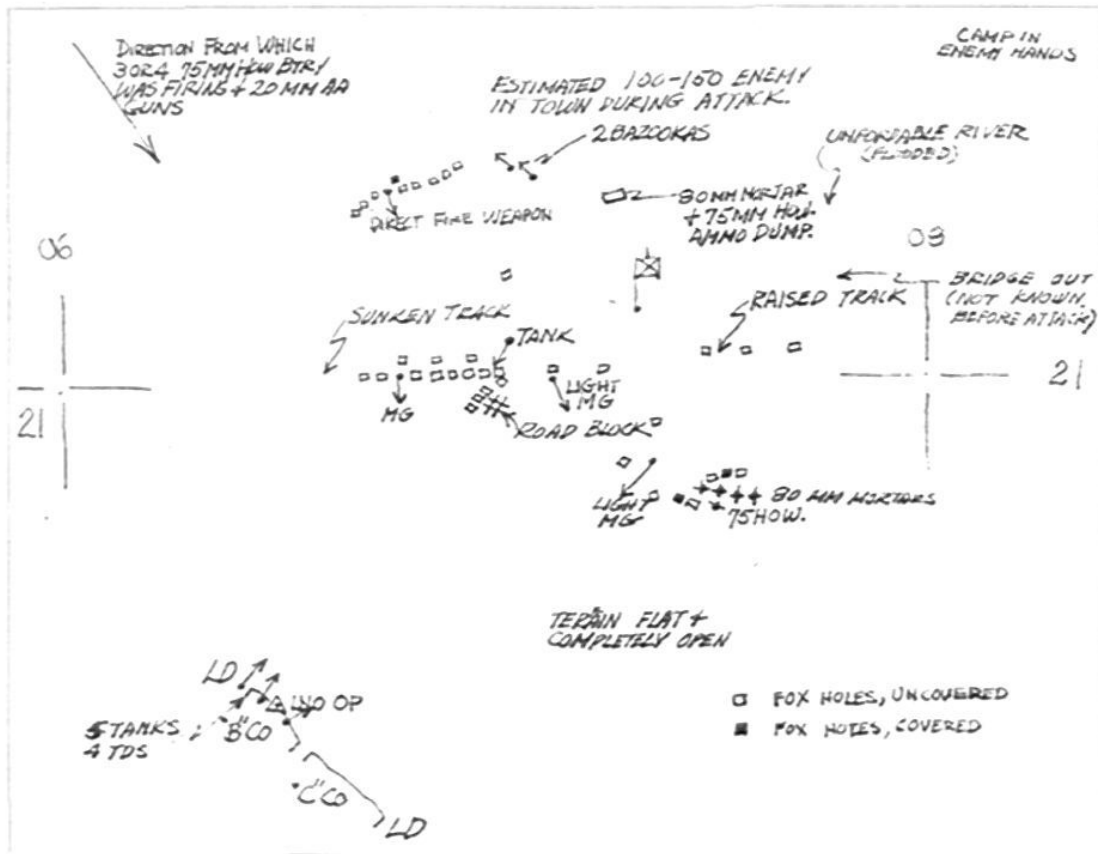 DIRECTION FROM WHICH
3 OR 4 75MM HOW BTRY
WAS FIRING + 20 MM AA
GUNS
CAMP IN
ENEMY HANDS
ESTIMATED 100-150 ENEMY
IN TOWN DURING ATTACK.
2 BAZOOKAS
UNFORDABLE RIVER
(FLOODED)
80MM MORTAR
+ 75MM HOW.
AMMO DUMP.
DIRECT FIRE WEAPON
06
08
BRIDGE OUT
(NOT KNOWN
BEFORE ATTACK)
SUNKEN TRACK
RAISED TRACK
TANK
21
21
MG
LIGHT
MG
ROAD BLOCK
LIGHT
MG
80 MM MORTARS
75 HOW.
TERAIN FLAT +
COMPLETELY OPEN
LD
OP
5 TANKS
4 TDS
"B" CO
"C" CO
LD
FOX HOLES, UNCOVERED
FOX HOLES, COVERED